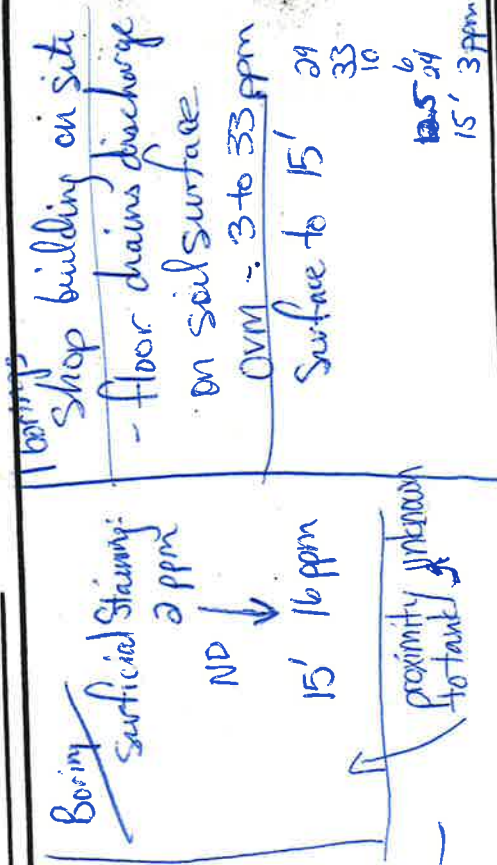 Boring
Surficial Staining:
2 ppm
ND
15' 16 ppm
proximity unknown
to tank
1 boring
Shop building on site
- floor drains discharge
on soil surface
OVM - 3 to 33 ppm
Surface to 15'
29
33
10
6
24
15' 3 ppm